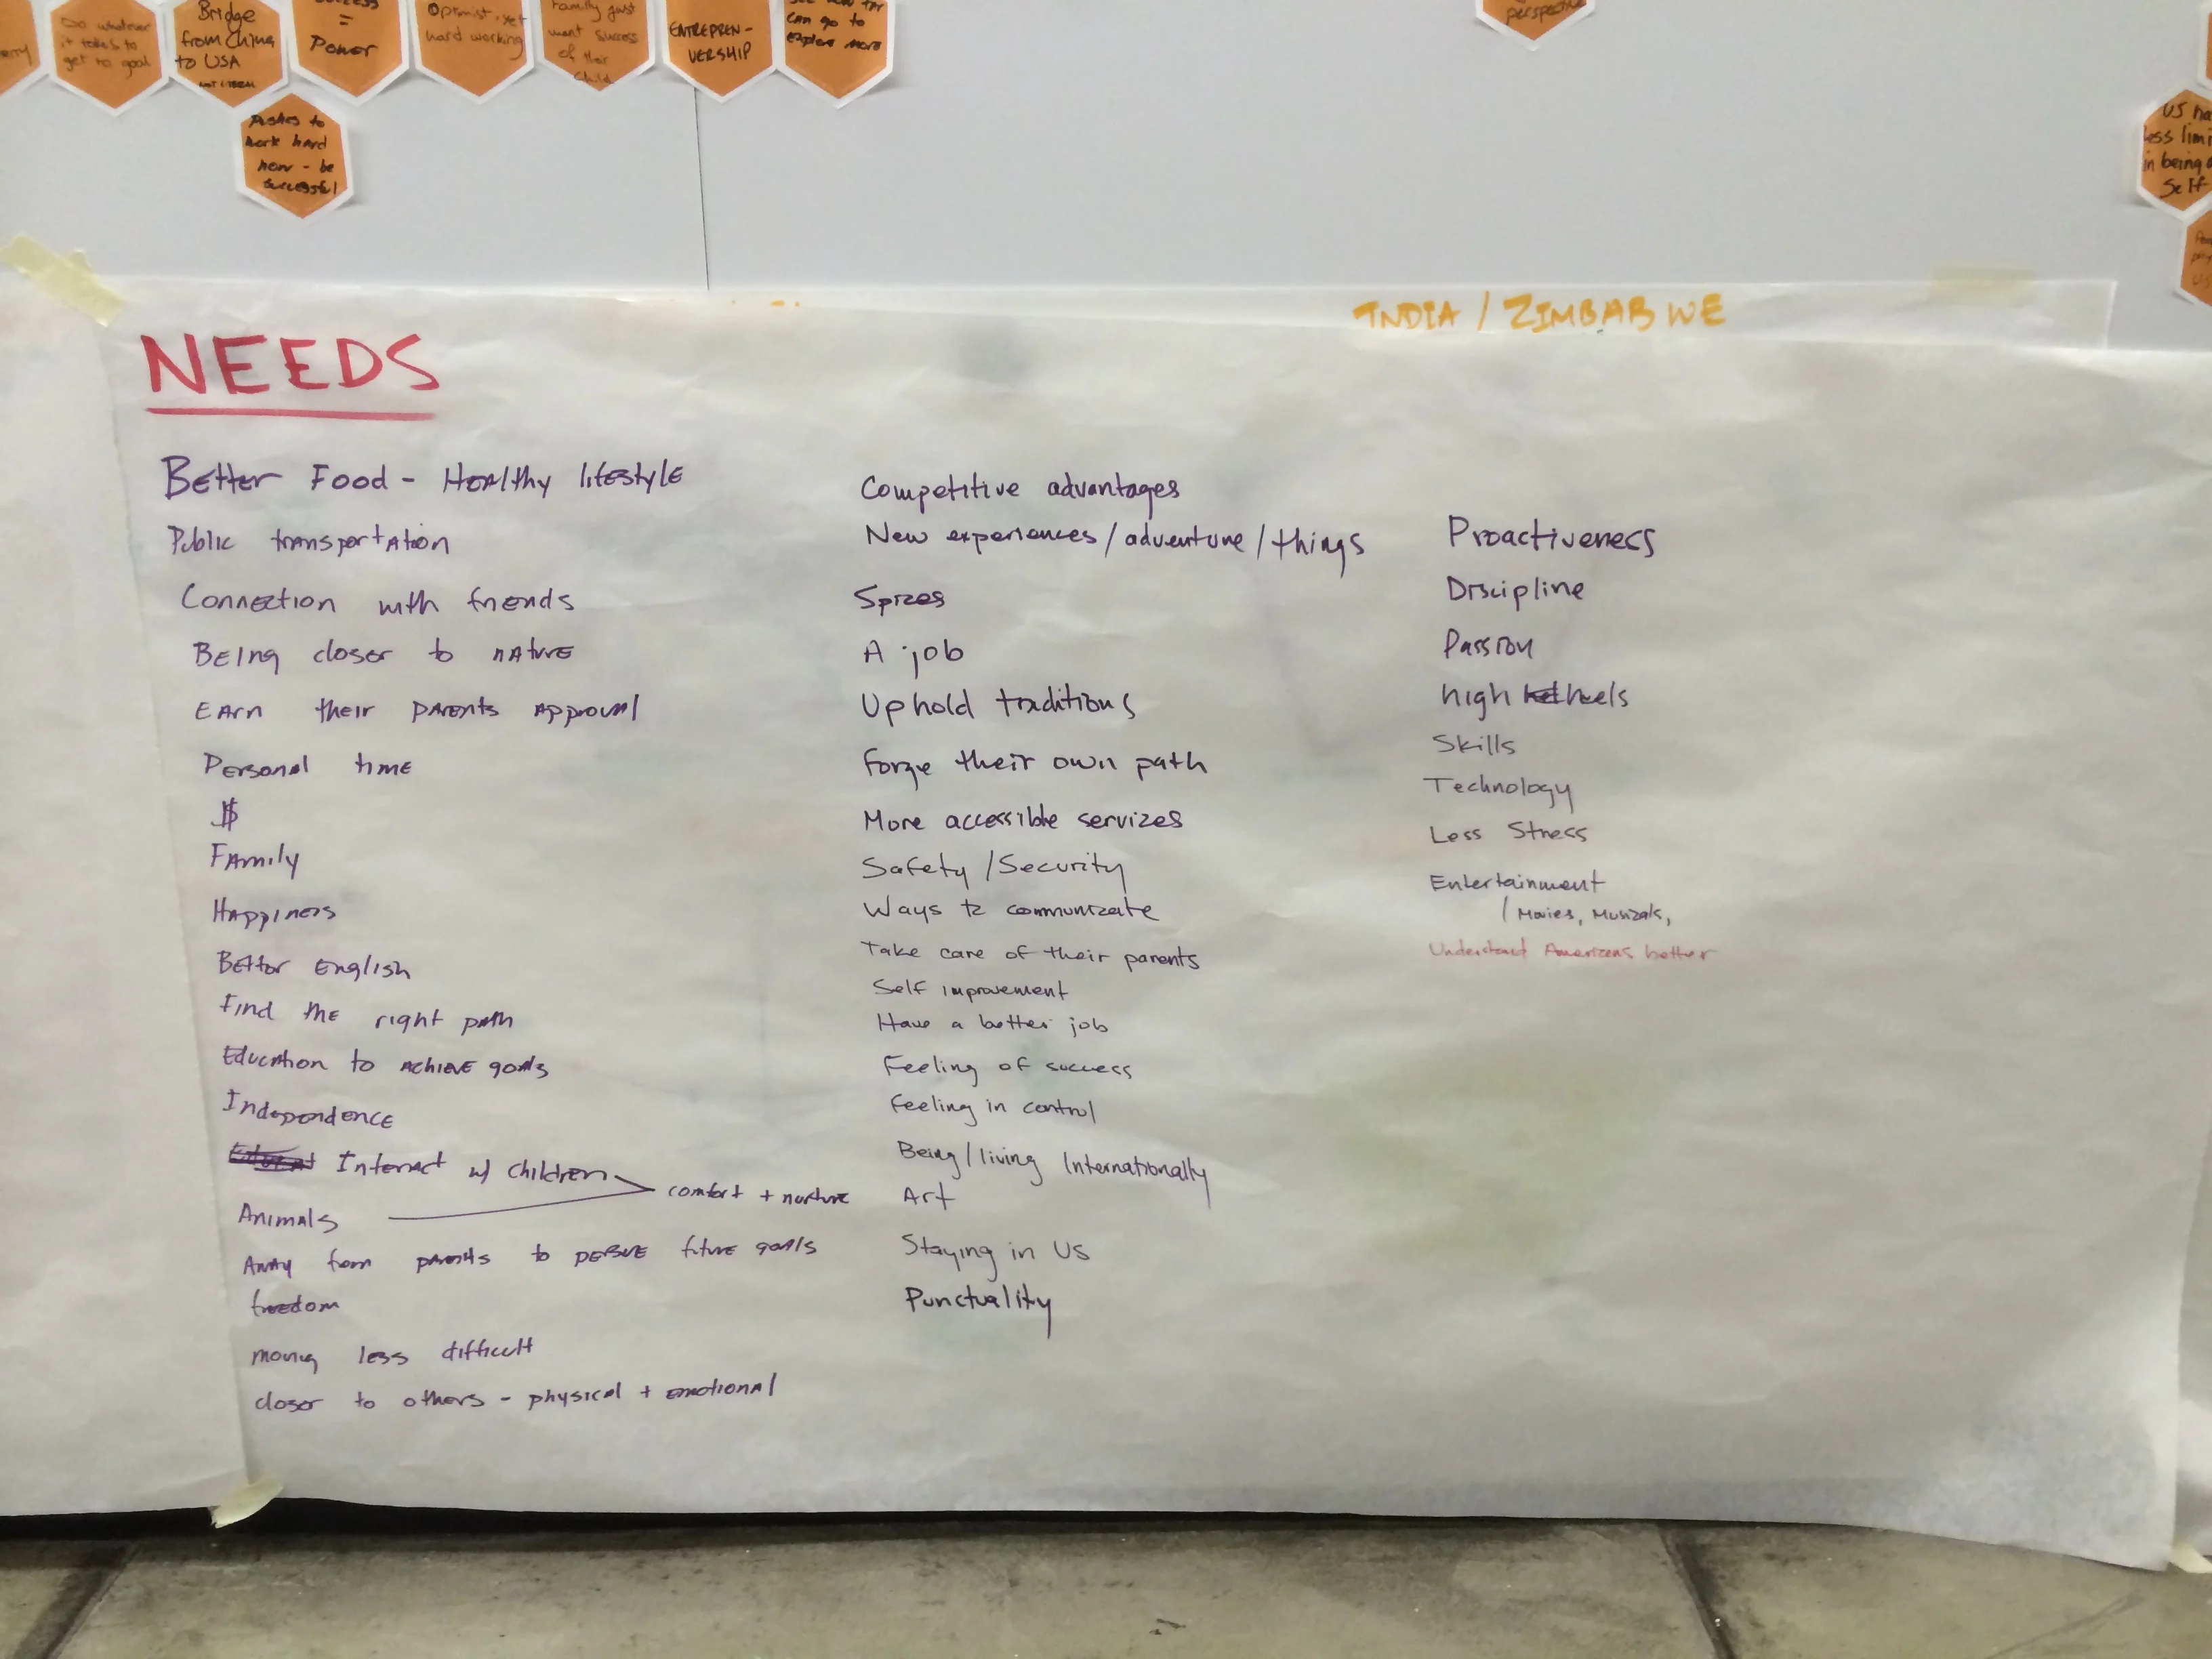 Do whatever
it takes to
get to goal
Bridge
from China
to USA
=
Power
Optimist yet
hard working
Family just
want success
of their
child
ENTREPREN-
VERSHIP
can go to
explore more
perspective
Pushes to
work hard
now - be
successful
US
less
in being
Self
INDIA / ZIMBABWE
NEEDS
Better Food - Healthy lifestyle
Public transportation
Connection with friends
Being closer to nature
Earn their parents approval
Personal time
$
Family
Happiness
Better English
Find the right path
Education to achieve goals
Independence
Interact w/ children
comfort + nurture
Animals
Away from parents to persue future goals
freedom
moving less difficult
closer to others - physical + emotional
Competitive advantages
New experiences / adventure / things
Spices
A job
Uphold traditions
Forge their own path
More accessible services
Safety / Security
Ways to communicate
Take care of their parents
Self improvement
Have a better job
Feeling of success
Feeling in control
Being / living Internationally
Art
Staying in US
Punctuality
Proactiveness
Discipline
Passion
high heels
Skills
Technology
Less Stress
Entertainment
/ Movies, Musicals,
Understand Americans better